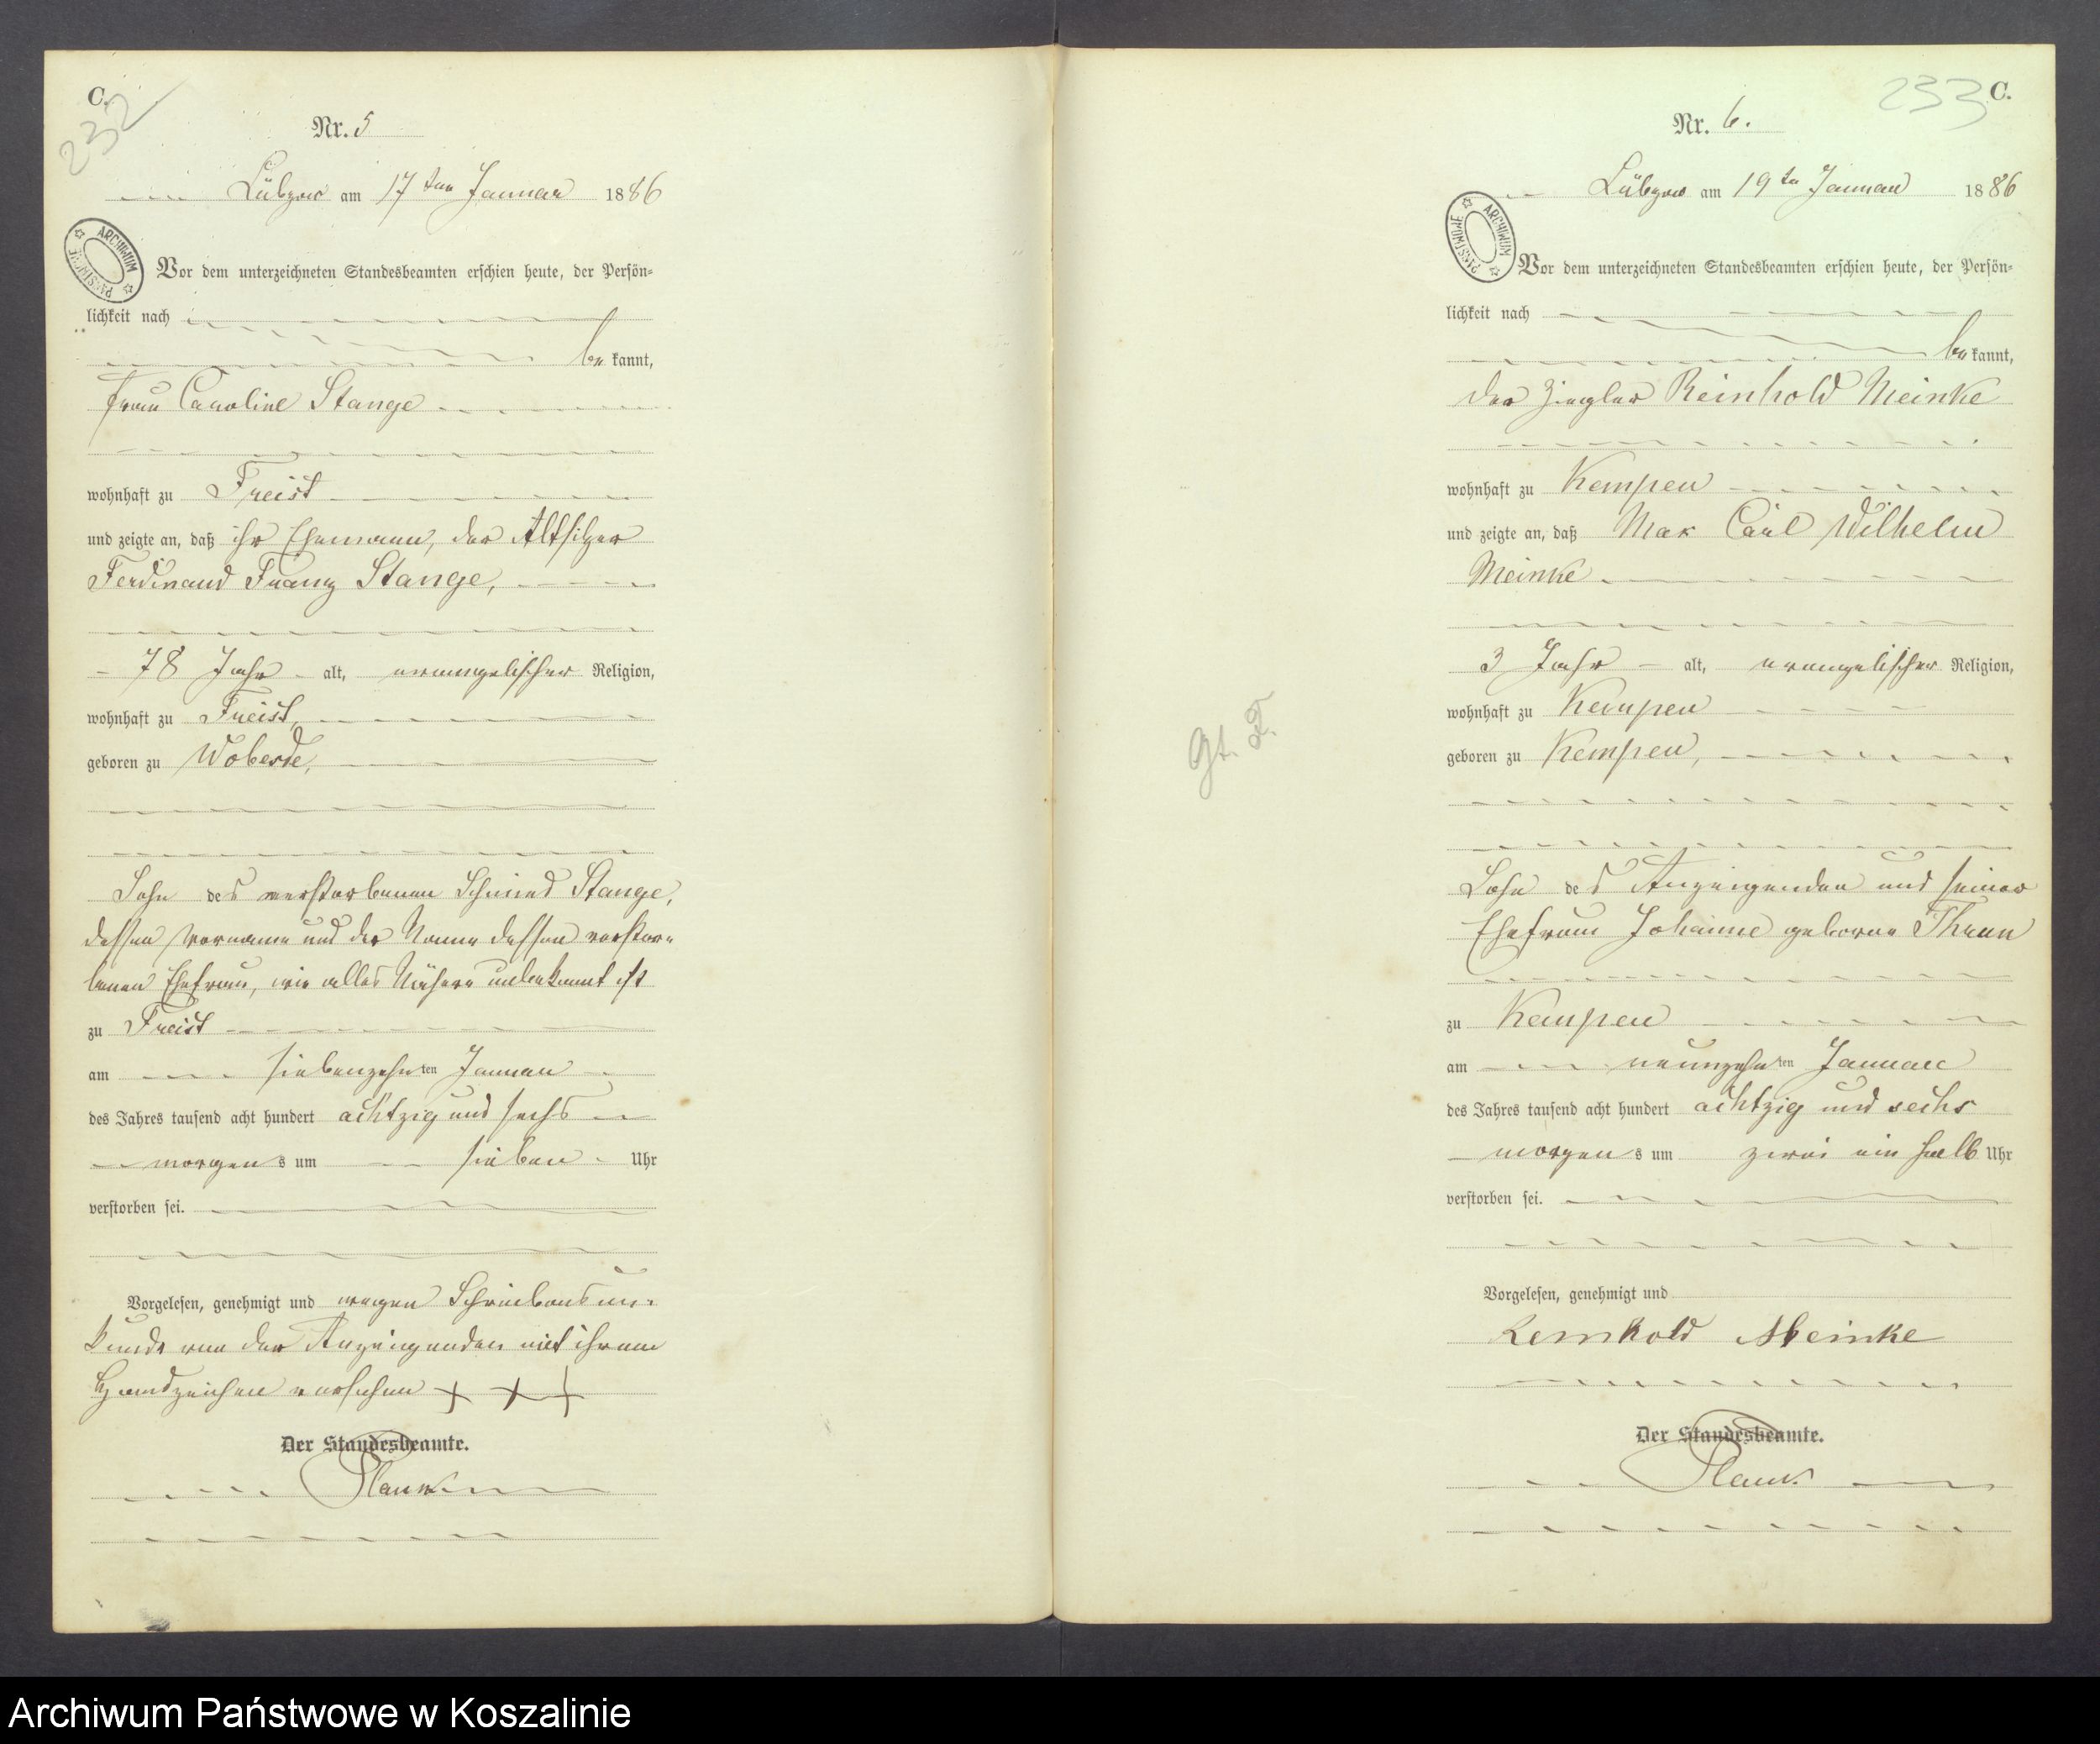 C.
232
Nr. 5
Lübzow am 17ten Januar 1886
ARCHIWUM PAŃSTWOWE
Vor dem unterzeichneten Standesbeamten erschien heute, der Persön-
lichkeit nach
be kannt,
Frau Caroline Stange
wohnhaft zu Freist
und zeigte an, daß ihr Ehemann, der Altsitzer
Ferdinand Franz Stange,
78 Jahr alt, evangelischer Religion,
wohnhaft zu Freist,
geboren zu Wobesde,
Sohn des verstorbenen Schmied Stange,
dessen Vorname und der Name dessen verstor-
benen Ehefrau, wie alles Nähere unbekannt ist
zu Freist
am siebenzehnten Januar
des Jahres tausend acht hundert achtzig und sechs
morgens um sieben Uhr
verstorben sei.
Vorgelesen, genehmigt und wegen Schreibensun-
kunde von der Anzeigenden mit ihrem
Handzeichen versehen + + +
Der Standesbeamte.
233 C.
Nr. 6.
Lübzow am 19ten Januar 1886
ARCHIWUM PAŃSTWOWE
Vor dem unterzeichneten Standesbeamten erschien heute, der Persön-
lichkeit nach
be kannt,
der Ziegler Reinhold Meinke
wohnhaft zu Kempen
und zeigte an, daß Max Carl Wilhelm
Meinke
3 Jahr alt, evangelischer Religion,
wohnhaft zu Kempen
geboren zu Kempen,
Sohn des Anzeigenden und seiner
Ehefrau Johanne geborne Thrun
zu Kempen
am neunzehnten Januar
des Jahres tausend acht hundert achtzig und sechs
morgens um zwei ein halb Uhr
verstorben sei.
Vorgelesen, genehmigt und
Reinhold Meinke
Der Standesbeamte.
Archiwum Państwowe w Koszalinie